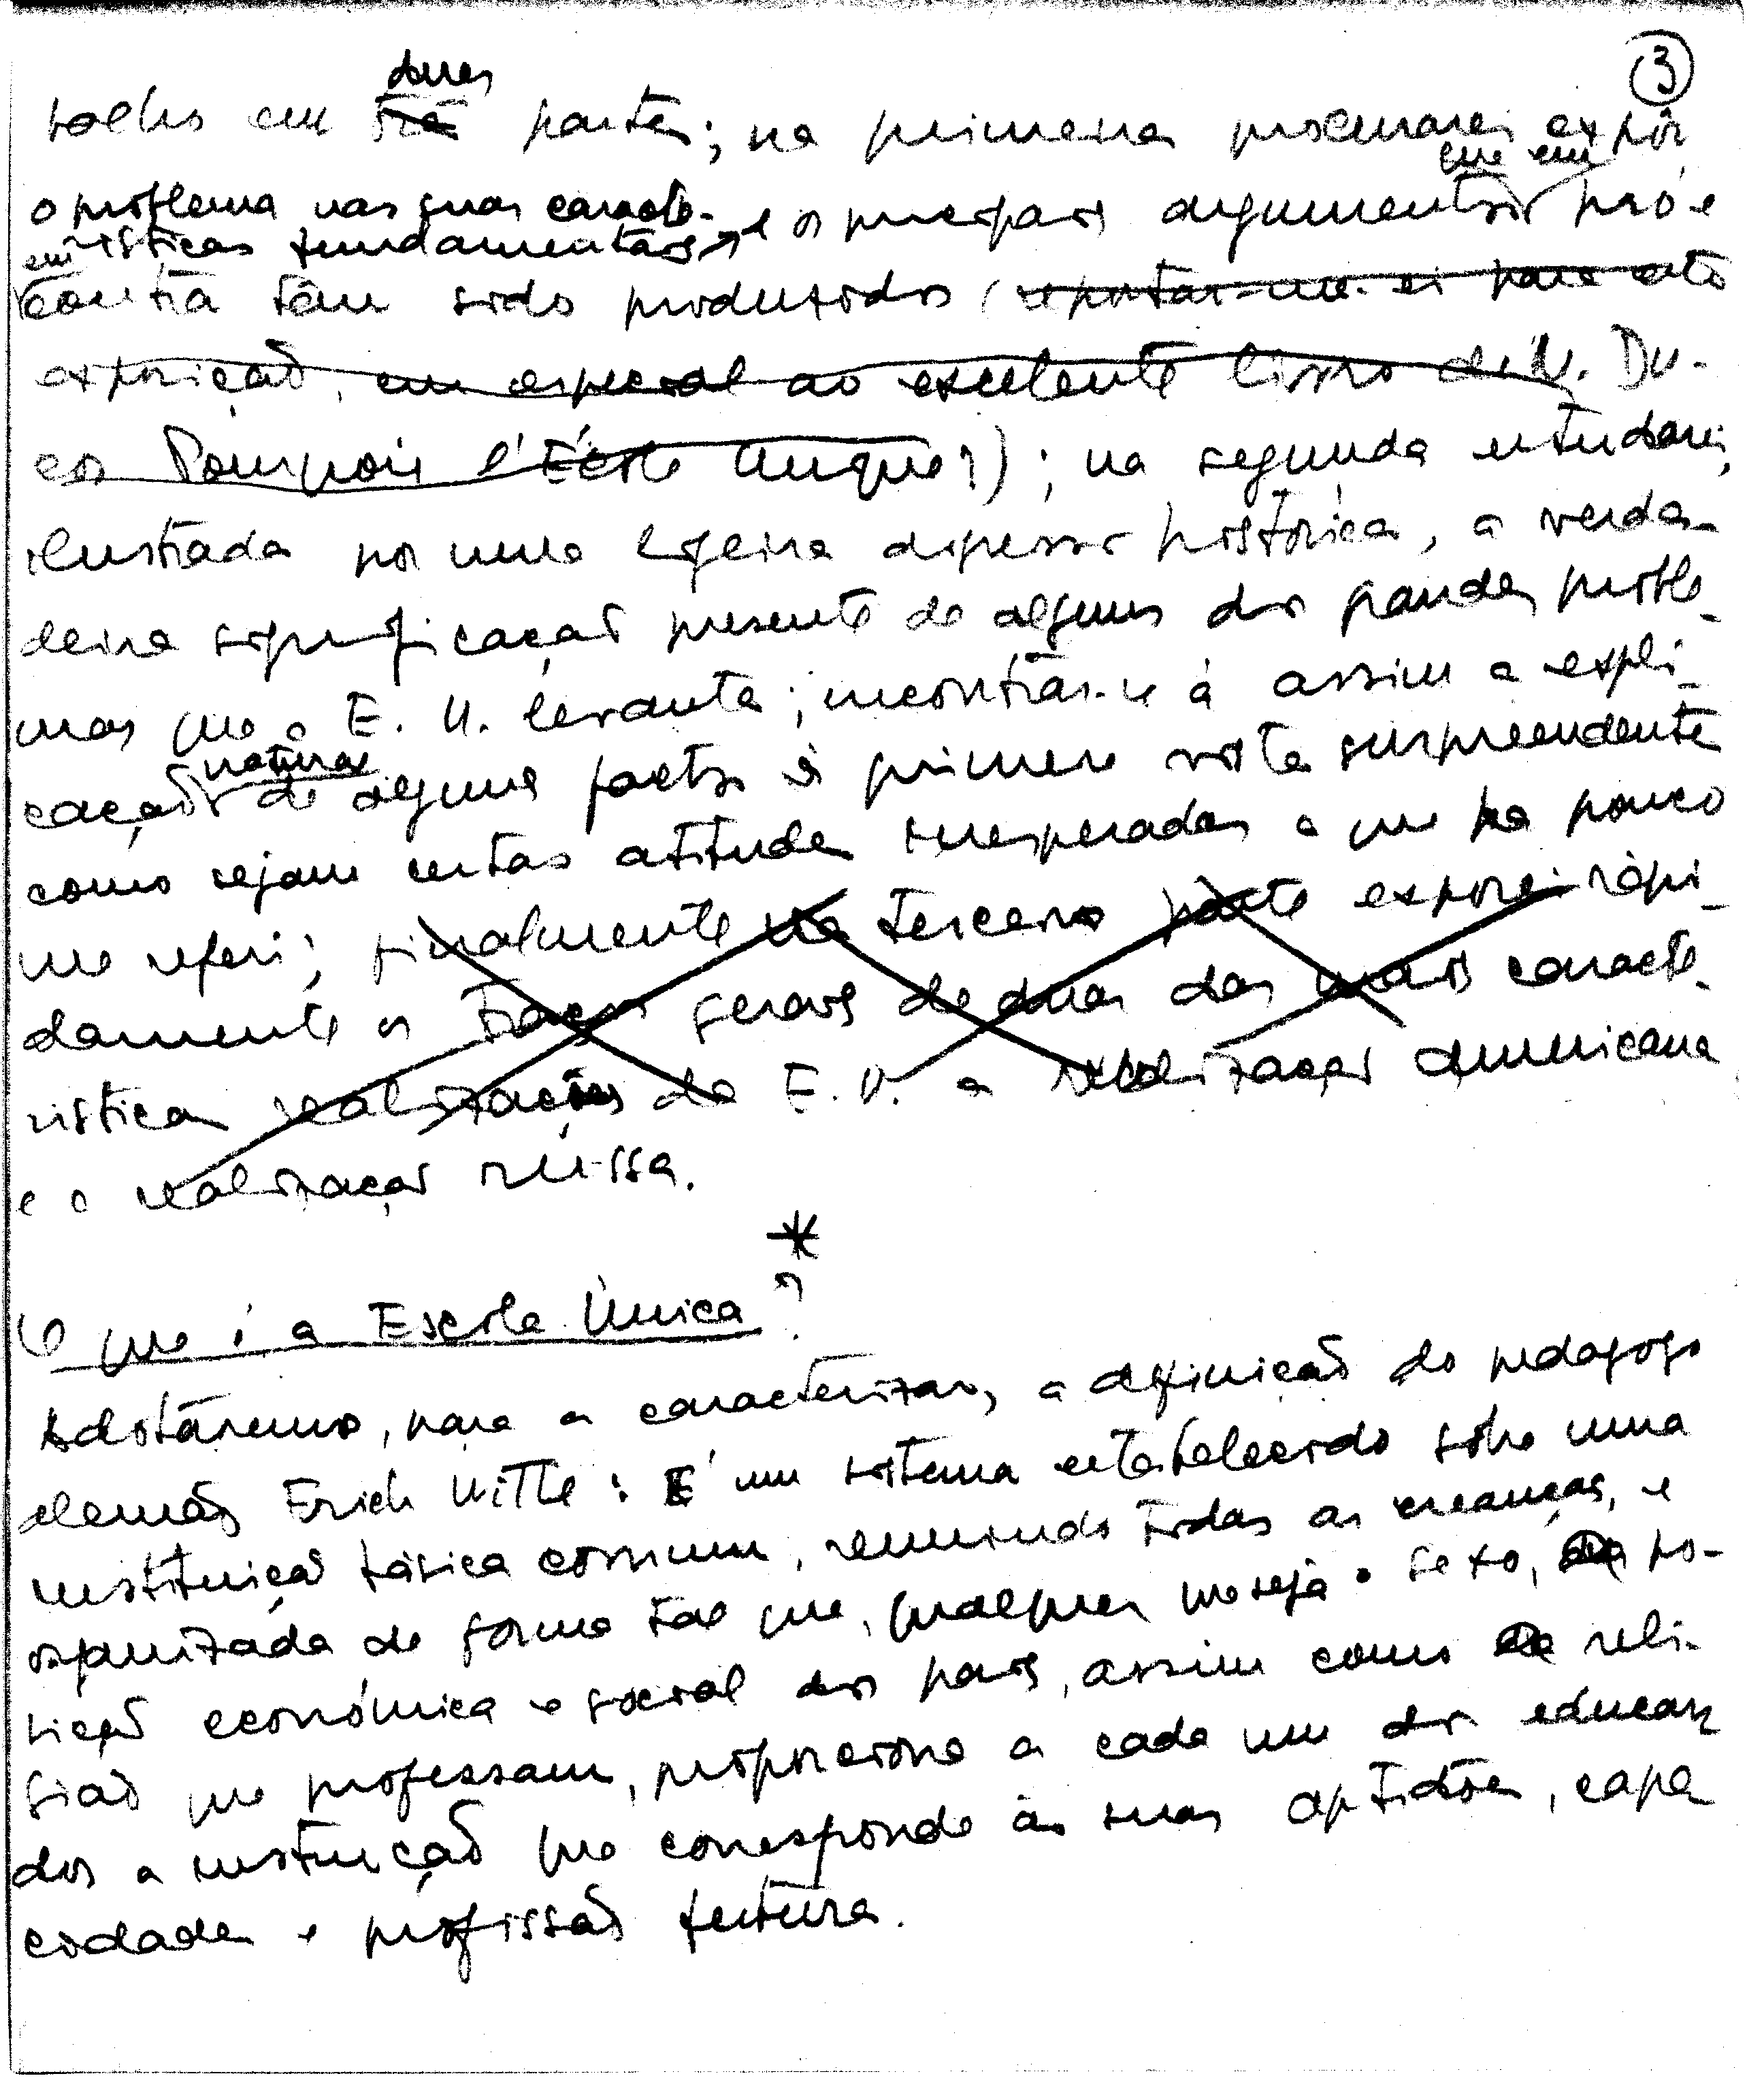 ③
duas
balho em três partes; na primeira procurarei expôr
o problema nas suas caracte-
rísticas fundamentais, e os principais argumentos que em pró e
em contra têm sido produzidos (reportar-me-ei para esta
exposição, em especial ao excelente livro de N. Du-
cos Pourquoi l'École Unique?); na segunda estudarei,
ilustrada por uma ligeira digressão histórica, a verda-
deira significação presente de alguns dos grandes proble-
mas que a E. U. levanta; encontrar-se á assim a expli-
cação natural de alguns factos à primeira vista surpreendentes
como sejam certas atitudes inesperadas a que ha pouco
me referi; finalmente na terceira parte exporei rápi-
damente os traços gerais de duas das mais caracte-
risticas realizações da E. U. a realização americana
e a realização russa.
*
O que é a Escola Única?
Adotáremos, para a caracterizar, a definição do pedagogo
alemão Erich Witte: É um sistema estabelecido sôbre uma
instituição básica comum, reunindo todas as creanças, e
organizada de forma tal que, qualquer que seja o sexo, a po-
sição económica e social dos pais, assim como a reli-
gião que professam, proporcione a cada um dos educan-
dos a instrução que corresponde às suas aptidões, capa-
cidades e profissão futura.